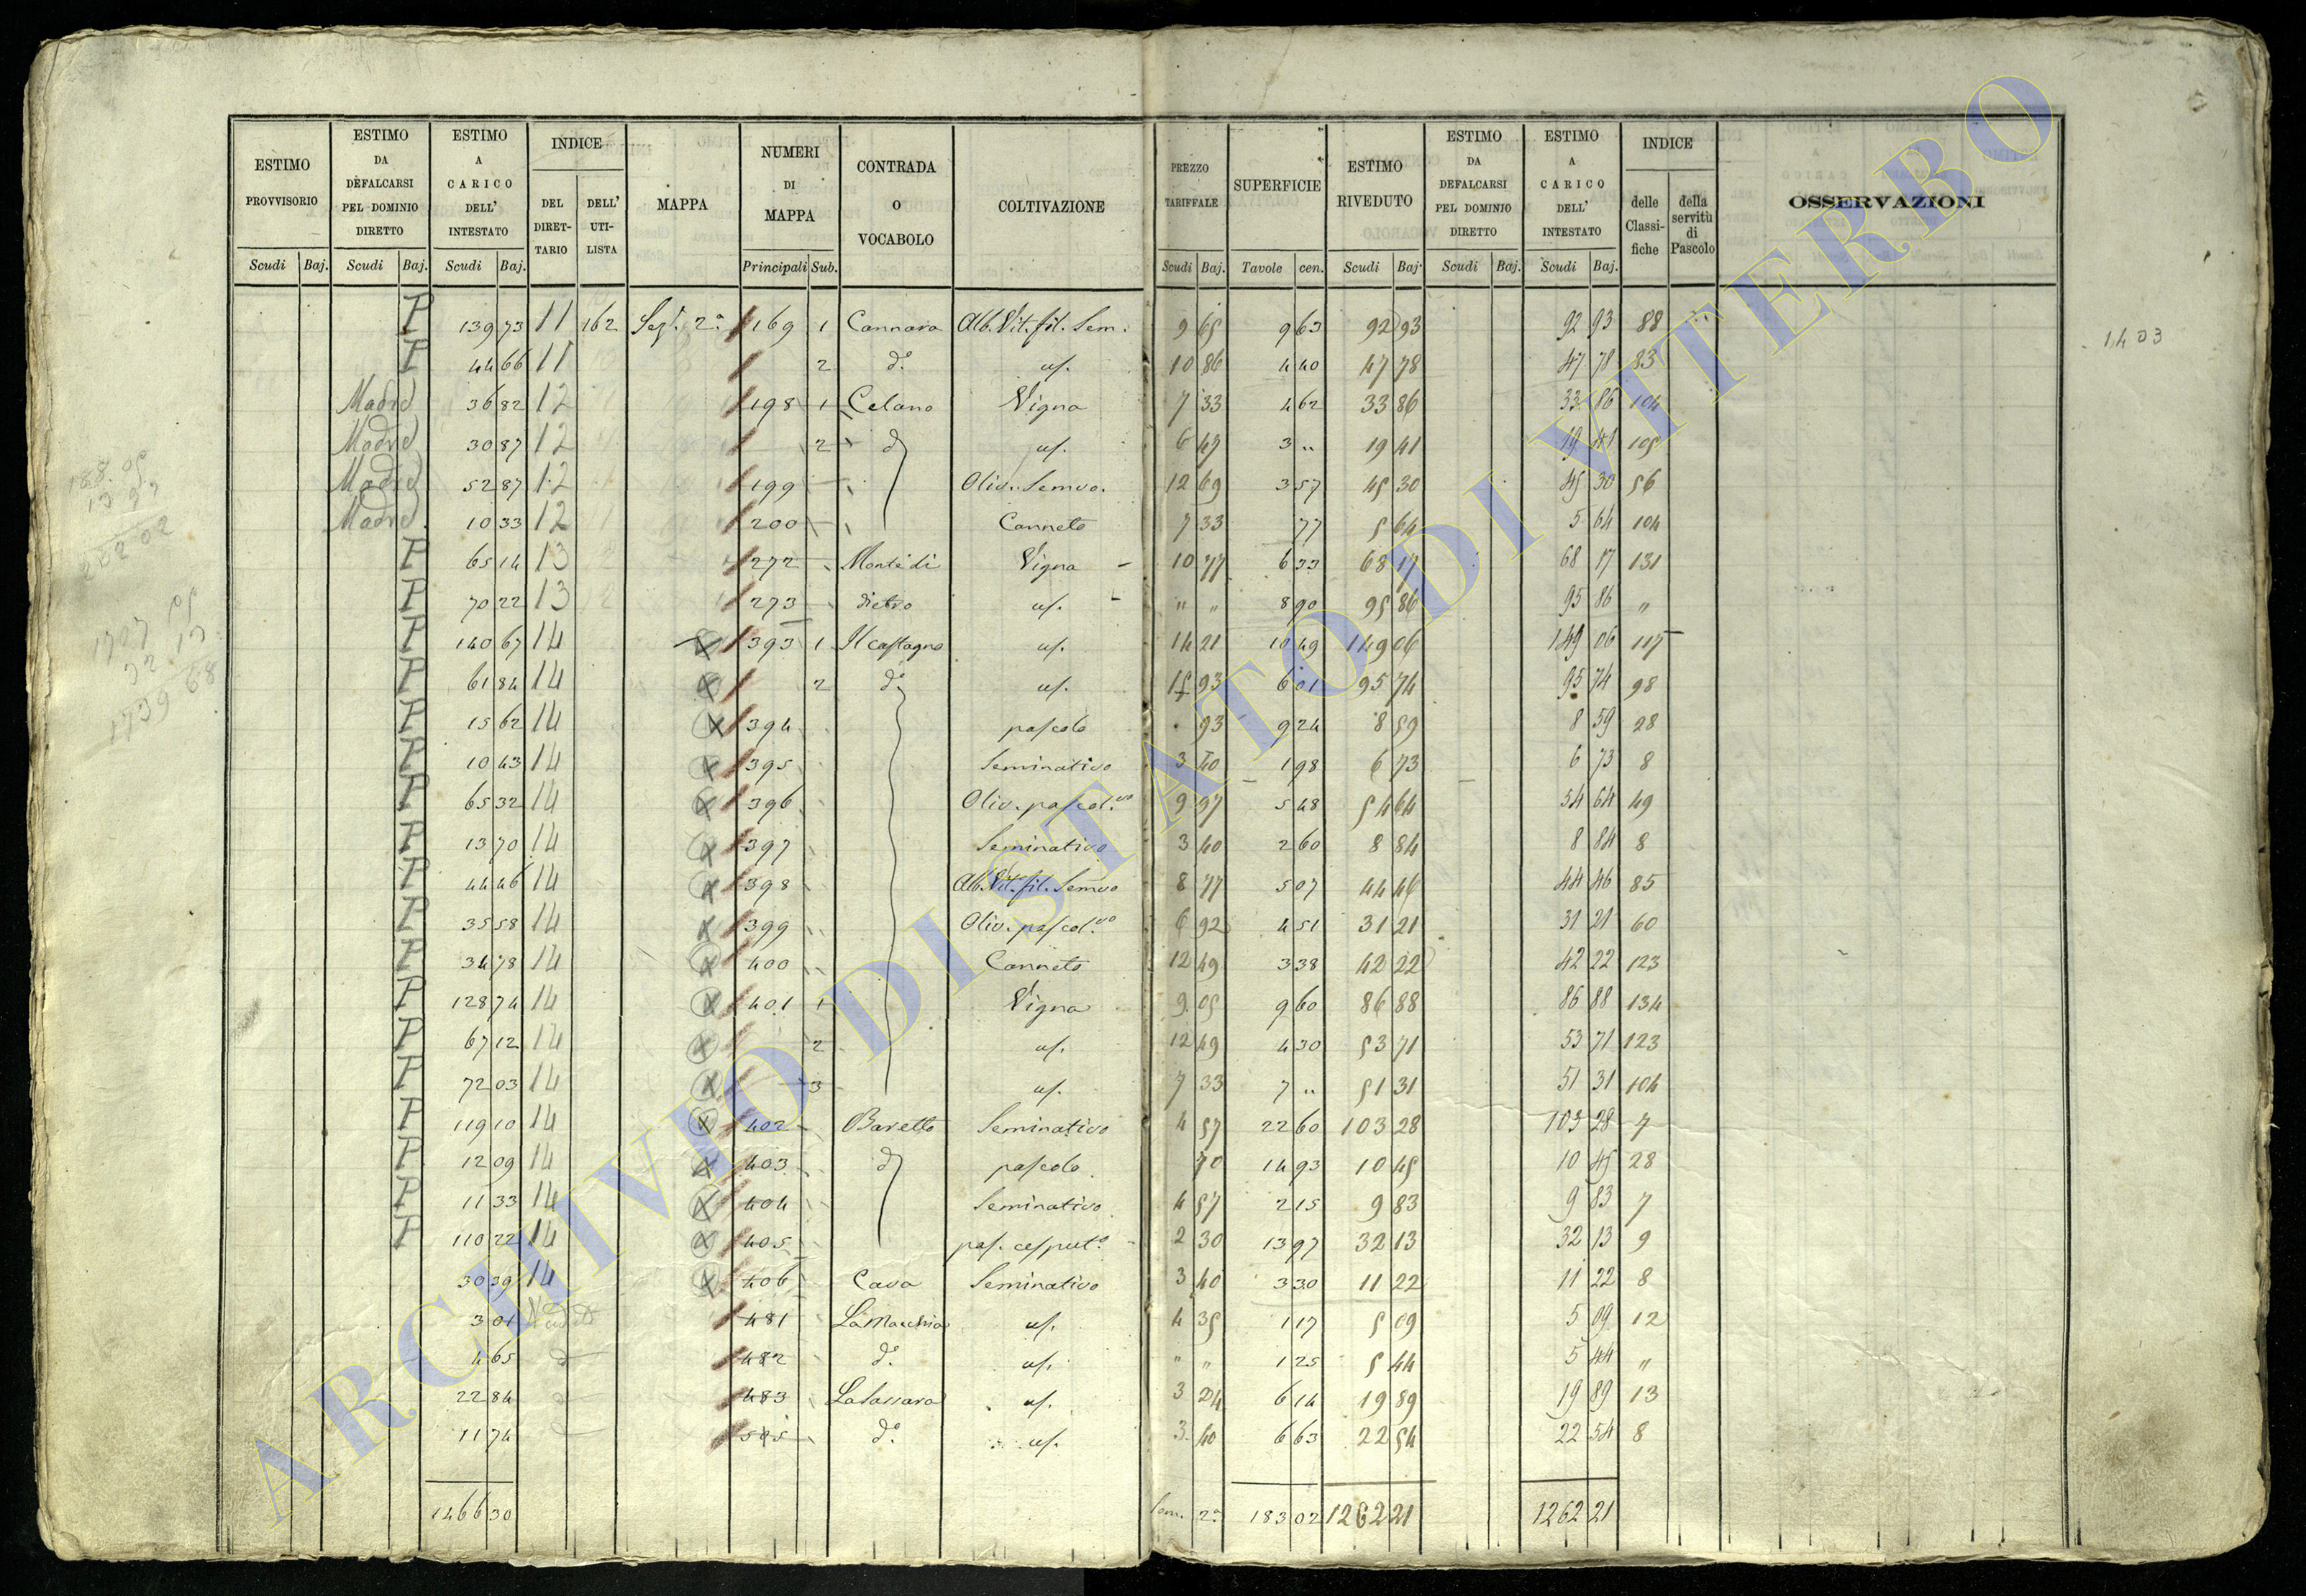 ESTIMO PROVVISORIO Scudi Baj.
ESTIMO DA DEFALCARSI PEL DOMINIO DIRETTO Scudi Baj.
ESTIMO A CARICO DELL' INTESTATO Scudi Baj.
INDICE DEL DIRET-TARIO DELL' UTI-LISTA
MAPPA
NUMERI DI MAPPA Principali Sub.
CONTRADA O VOCABOLO
COLTIVAZIONE
PREZZO TARIFFALE Scudi Baj.
SUPERFICIE Tavole cen.
ESTIMO RIVEDUTO Scudi Baj.
ESTIMO DA DEFALCARSI PEL DOMINIO DIRETTO Scudi Baj.
ESTIMO A CARICO DELL' INTESTATO Scudi Baj.
INDICE delle Classi-fiche della servitù di Pascolo
OSSERVAZIONI
P 139 73 11 162 Sez. 2a 169 1 Cannara Alb. Vit. fil. Sem. 9 65 9 63 92 93 92 93 88
P 44 66 11 2 d.o us. 10 86 4 40 47 78 47 78 83
Madre 36 82 12 198 1 Celano Vigna 7 33 4 62 33 86 33 86 104
Madre 30 87 12 2 d us. 6 47 3 .. 19 41 19 41 105
Madre 52 87 12 199 Oliv. Semvo. 12 69 3 57 45 30 45 30 56
Madre 10 33 12 200 Canneto 7 33 77 5 64 5 64 104
P 65 14 13 272 Monte di Vigna 10 77 6 33 68 17 68 17 131
P 70 22 13 273 dietro us. " " 8 90 95 86 95 86 "
P 140 67 14 393 1 Il castagno us. 14 21 10 49 149 06 149 06 117
P 61 84 14 2 d.o us. 15 93 6 01 95 74 95 74 98
P 15 62 14 394 pascolo . 93 9 24 8 59 8 59 28
P 10 43 14 395 Seminativo 3 40 1 98 6 73 6 73 8
P 65 32 14 396 Oliv. pascol.vo 9 97 5 48 54 64 54 64 49
P 13 70 14 397 Seminativo 3 40 2 60 8 84 8 84 8
P 44 46 14 398 Alb. Vit. fil. Semvo 8 77 5 07 44 46 44 46 85
P 35 58 14 399 Oliv. pascol.vo 6 92 4 51 31 21 31 21 60
P 34 78 14 400 Canneto 12 49 3 38 42 22 42 22 123
P 128 74 14 401 1 Vigna 9 05 9 60 86 88 86 88 134
P 67 12 14 2 us. 12 49 4 30 53 71 53 71 123
P 72 03 14 3 us. 7 33 7 .. 51 31 51 31 104
P 119 10 14 402 Baretto Seminativo 4 57 22 60 103 28 103 28 7
P 12 09 14 403 d pascolo 70 14 93 10 45 10 45 28
P 11 33 14 404 Seminativo 4 57 2 15 9 83 9 83 7
P 110 22 14 405 pas. cesput.o 2 30 13 97 32 13 32 13 9
30 39 14 406 Cava Seminativo 3 40 3 30 11 22 11 22 8
3 01 481 La Macchia us. 4 35 1 17 5 09 5 09 12
4 65 482 d.o us. " " 1 25 5 44 5 44 "
22 84 483 us. 3 24 6 14 19 89 19 89 13
11 74 d.o us. 3 40 6 63 22 54 22 54 8
1466 30 2a 183 02 1262 21 1262 21
1403
1739 68
ARCHIVIO DI STATO DI VITERBO